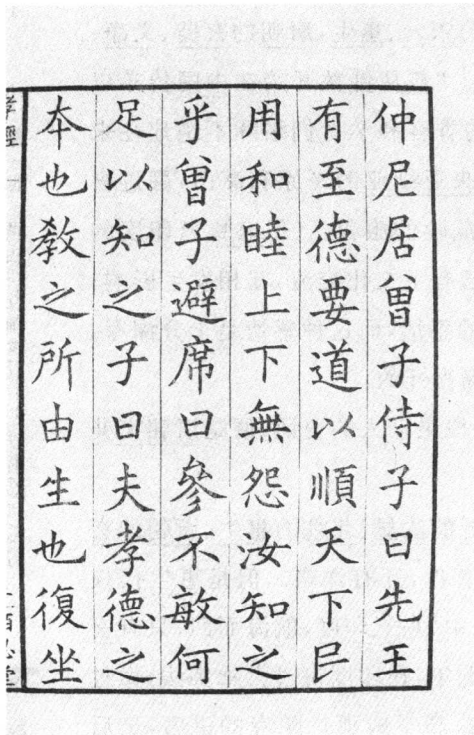 仲尼居曽子侍子曰先王
有至德要道以順天下民
用和睦上下無怨汝知之
乎曽子避席曰參不敏何
足以知之子曰夫孝德之
本也教之所由生也復坐
孝經